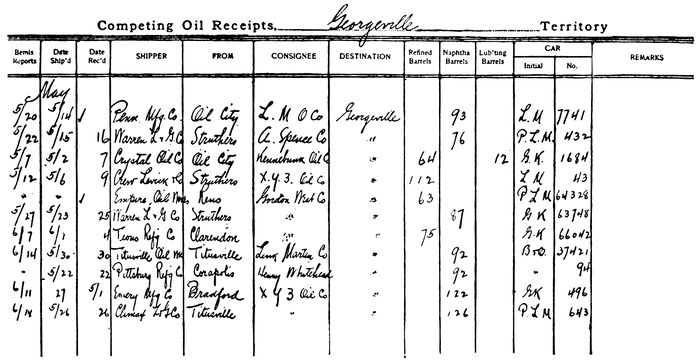 Competing Oil Receipts, Georgeville Territory
Bemis Reports Date Ship'd Date Rec'd SHIPPER FROM CONSIGNEE DESTINATION Refined Barrels Naphtha Barrels Lub'ting Barrels CAR Initial No. REMARKS
May
5/20 5/14 √ Penn Mfg. Co. Oil City L. M O Co Georgeville 93 L. M 7741
5/22 5/15 16 Warren L & G. Co Struthers A. Spence Co " 76 P. L. M. 432
5/7 5/2 7 Crystal Oil Co Oil City Kennebunk Oil Co " 64 12 G. K. 1684
5/12 5/6 9 Chew Levick & Co Struthers X. Y. 3. Oil Co " 112 L M 43
" " √ Empire, Oil Reno Gordon West Co " 63 P L M 64328
5/27 5/23 25 Warren L & G Co Struthers " " 87 G K 63748
6/7 6/1 4 Tiona Refg Co Clarendon " " 75 G. K 66042
6/14 5/30 30 Titusville Oil Titusville Link Marten Co " 92 B & O. 37421
" 5/22 22 Pittsburg Refg Co Corapolis Henry Whitehead " 92 " 94
6/11 27 5/1 Emery Mfg Co Bradford X Y 3 Oil Co " 122 G K 496
6/18 5/26 26 Climax Co Titusville " " 126 P. L M 643